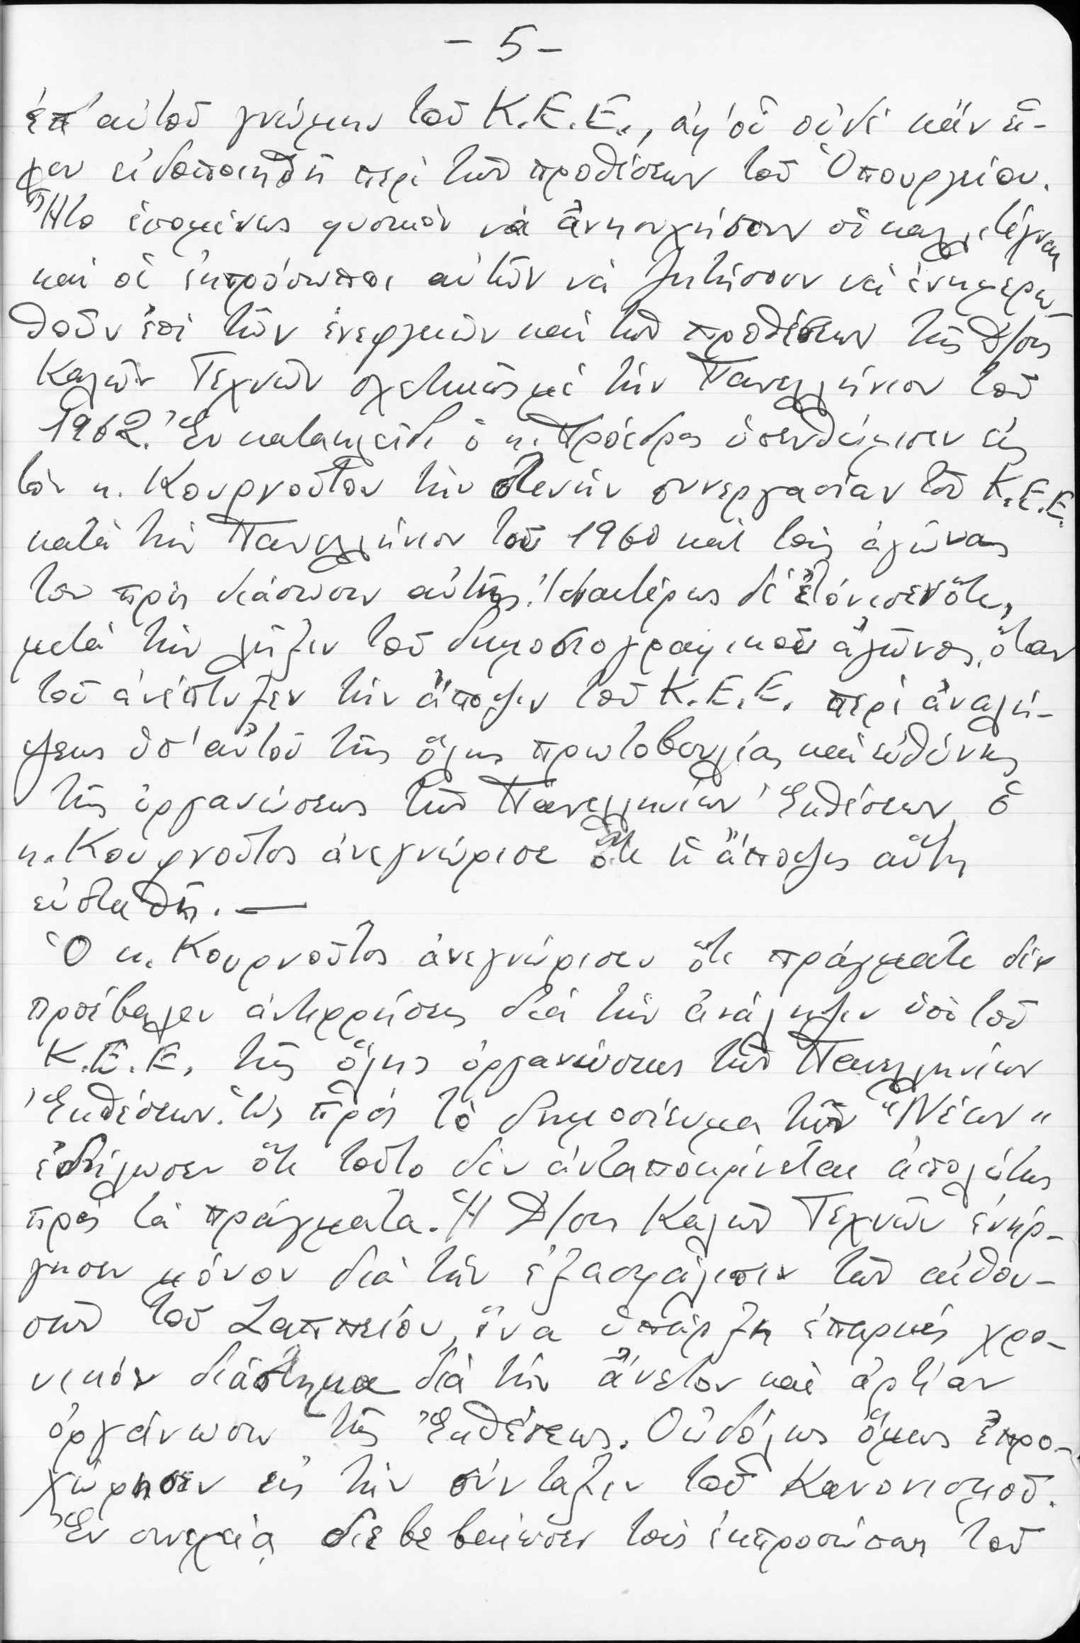 - 5 -
ἐπ' αὐτοῦ γνώμην τοῦ Κ.Ε.Ε., ἀφ' οὗ οὐδέ κἄν εἶ-
χεν εἰδοποιηθῆ περί τῶν προθέσεων τοῦ Ὑπουργείου.
Ἦτο ἑπομένως φυσικόν νά ἀνησυχήσουν οἱ καλλιτέχναι
καί οἱ ἐκπρόσωποι αὐτῶν νά ζητήσουν νά ἐνημερω-
θοῦν ἐπί τῶν ἐνεργειῶν καί τῶν προθέσεων τῆς Δ/σης
Καλῶν Τεχνῶν σχετικῶς μέ τήν Πανελλήνιον τοῦ
1962. Ἐν κατακλεῖδι ὁ κ. Πρόεδρος ὑπενθύμισεν εἰς
τόν κ. Κουρνοῦτον τήν στενήν συνεργασίαν τοῦ Κ.Ε.Ε.
κατά τήν Πανελλήνιον τοῦ 1960 καί τούς ἀγῶνας
του πρός διάσωσιν αὐτῆς. Ἰδιαιτέρως δέ ἐτόνισεν ὅτι,
μετά τήν λῆξιν τοῦ δημοσιογραφικοῦ ἀγῶνος, ὅταν
τοῦ ἀνέπτυξεν τήν ἄποψιν τοῦ Κ.Ε.Ε. περί ἀναλή-
ψεως ὑπ' αὐτοῦ τῆς ὅλης πρωτοβουλίας καί εὐθύνης
τῆς ὀργανώσεως τῶν Πανελληνίων Ἐκθέσεων, ὁ
κ. Κουρνοῦτος ἀνεγνώρισε ὅτι ἡ ἄποψις αὕτη
εὐσταθῆ. —
Ὁ κ. Κουρνοῦτος ἀνεγνώρισεν ὅτι πράγματι δέν
προέβαλεν ἀντιρρήσεις διά τήν ἀνάληψιν ὑπό τοῦ
Κ.Ε.Ε. τῆς ὅλης ὀργανώσεως τῶν Πανελληνίων
Ἐκθέσεων. Ὡς πρός τό δημοσίευμα τῶν "Νέων"
ἐδήλωσεν ὅτι τοῦτο δέν ἀνταποκρίνεται ἀπολύτως
πρός τά πράγματα. Ἡ Δ/σις Καλῶν Τεχνῶν ἐνήρ-
γησεν μόνον διά τήν ἐξασφάλισιν τῶν αἰθου-
σῶν τοῦ Ζαππείου, ἵνα ὑπάρξη ἐπαρκές χρο-
νικόν διάστημα διά τήν ἄνετον καί ἀρτίαν
ὀργάνωσιν τῆς Ἐκθέσεως. Οὐδόλως ὅμως ἐπρο-
χώρησεν εἰς τήν σύνταξιν τοῦ Κανονισμοῦ.
Ἐν συνεχείᾳ διεβεβαίωσεν τούς ἐκπροσώπους τοῦ